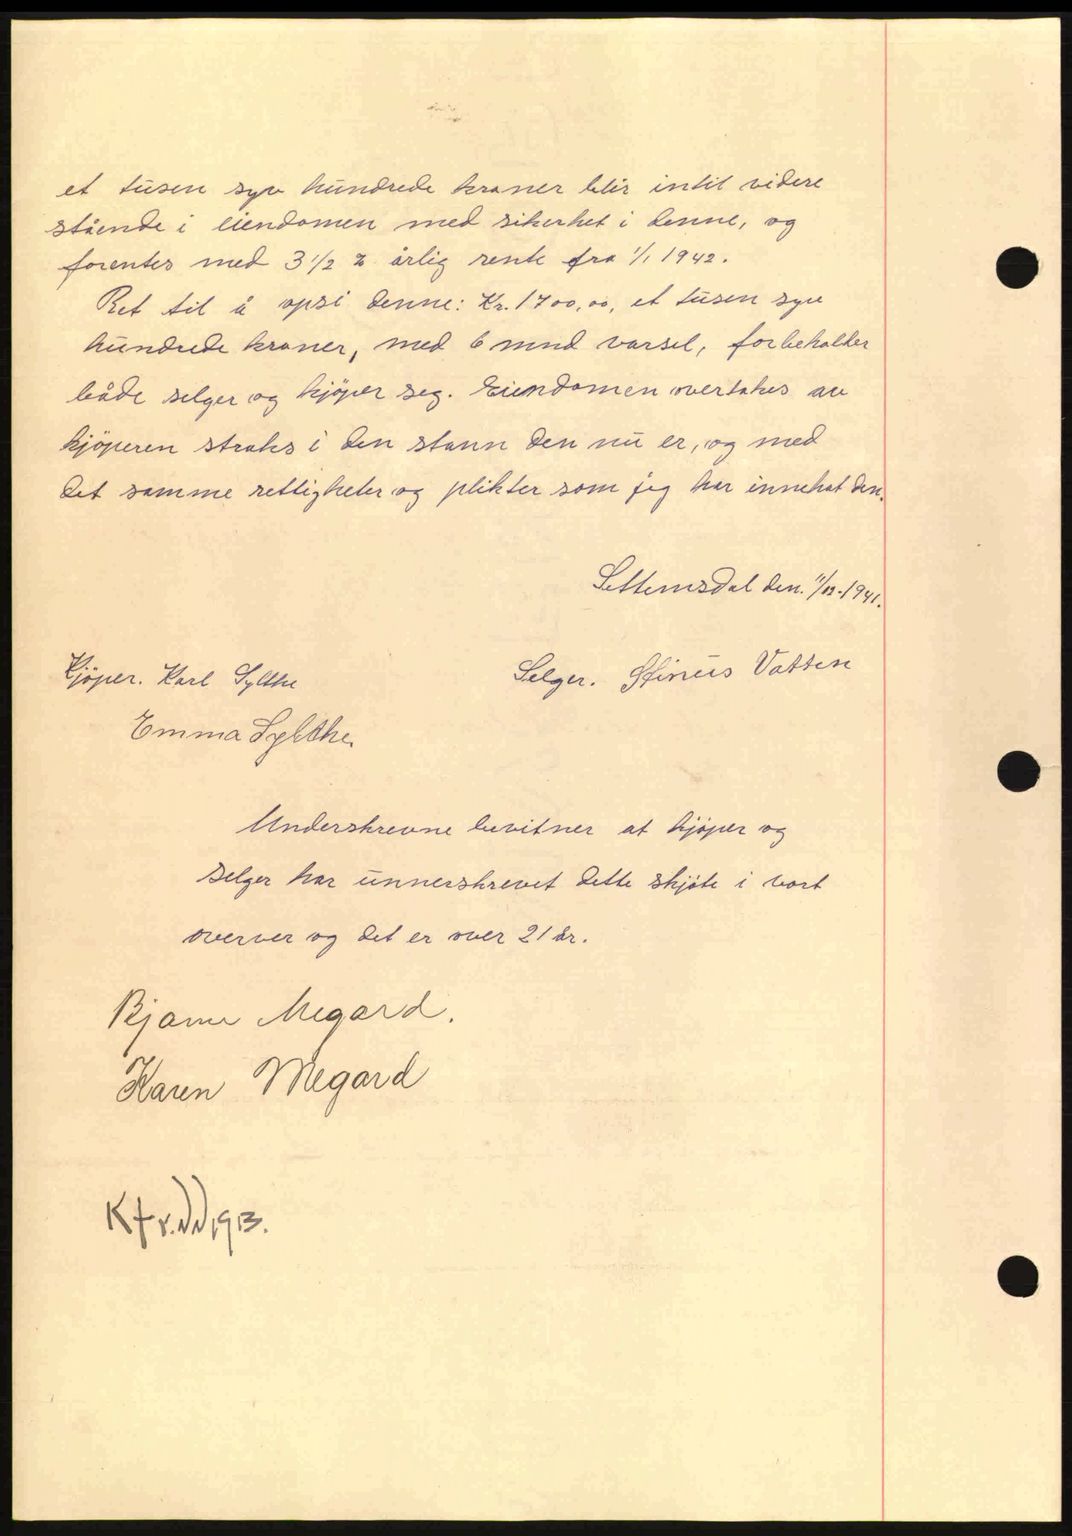 et tusen syv hundrede kroner blir intil videre
stående i eiendomen med sikerhet i denne, og
forentes med 3 1/2 % årlig rente fra 1/1 1942.
Ret til å opsi denne: Kr. 1700,00, et tusen syv
hundrede kroner, med 6 mnd varsel, forbeholder
både selger og kjöper seg. Eiendomen overtakes av
kjöperen straks i den stann den nu er, og med
det samme rettigheter og plikter som jeg har innehat den.
Settemsdal den. 11/12-1941.
Kjöper. Karl Sylthe
Selger. Stinus Vatten
Emma Sylthe.
Underskrevne bevitner at kjöper og
selger har unnerskrevet dette skjöte i vort
overver og det er over 21 år.
Bjarne Megard.
Karen Megard